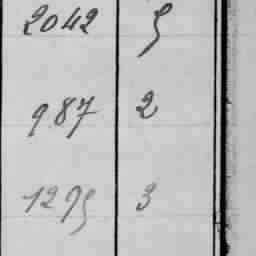 2042 5
987 2
1295 3